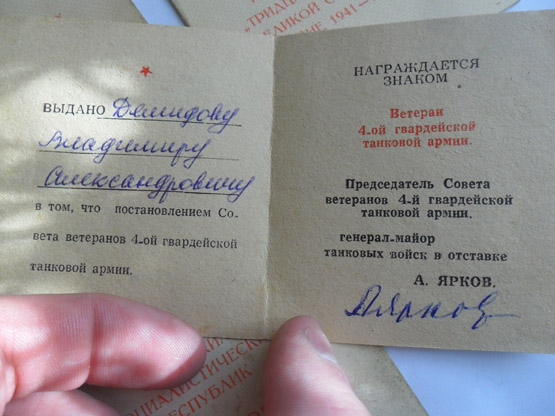 "ТРИДЦ
ЛИКОЙ С
НЕ 1941—
ВЫДАНО Демидову
Владимиру
Александровичу
в том, что постановлением Со-
вета ветеранов 4-ой гвардейской
танковой армии.
НАГРАЖДАЕТСЯ
ЗНАКОМ
Ветеран
4-ой гвардейской
танковой армии.
Председатель Совета
ветеранов 4-й гвардейской
танковой армии.
генерал-майор
танковых войск в отставке
А. ЯРКОВ.
АЯрков
ОЦИАЛИСТИЧЕСК
РЕСПУБЛИК